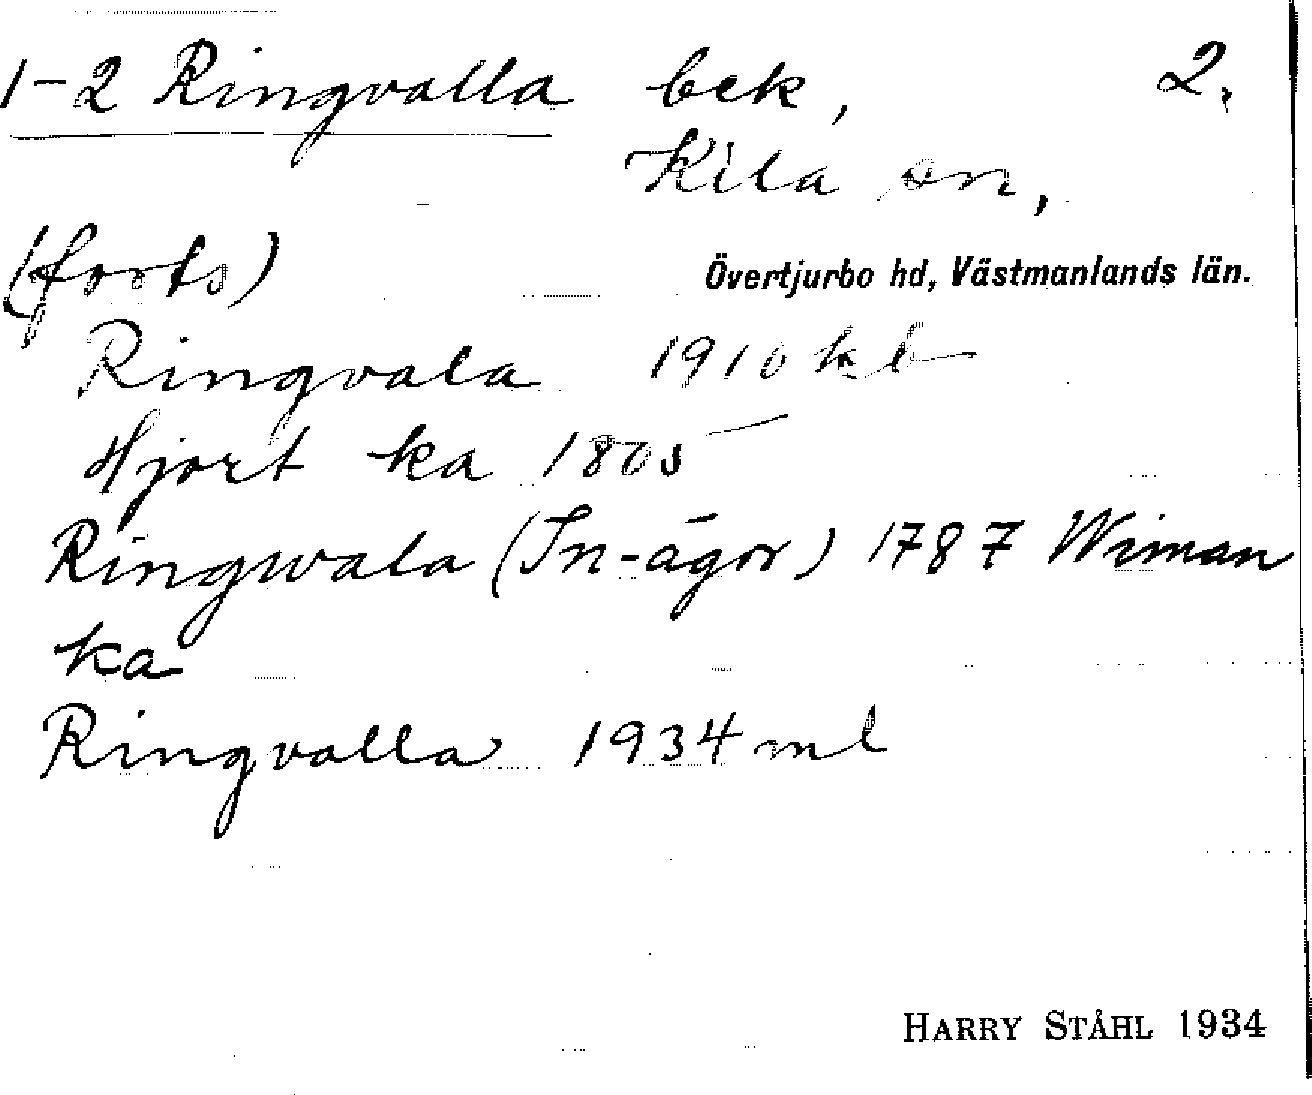 1-2 Ringvalla bek, 2.
Kila sn,
(forts)
Övertjurbo hd, Västmanlands län.
Ringvala 1910 kb
Hjort ka 1805
Ringwala (In-ägor) 1787 Wiman
ka
Ringvalla 1934 ml
HARRY STÅHL 1934